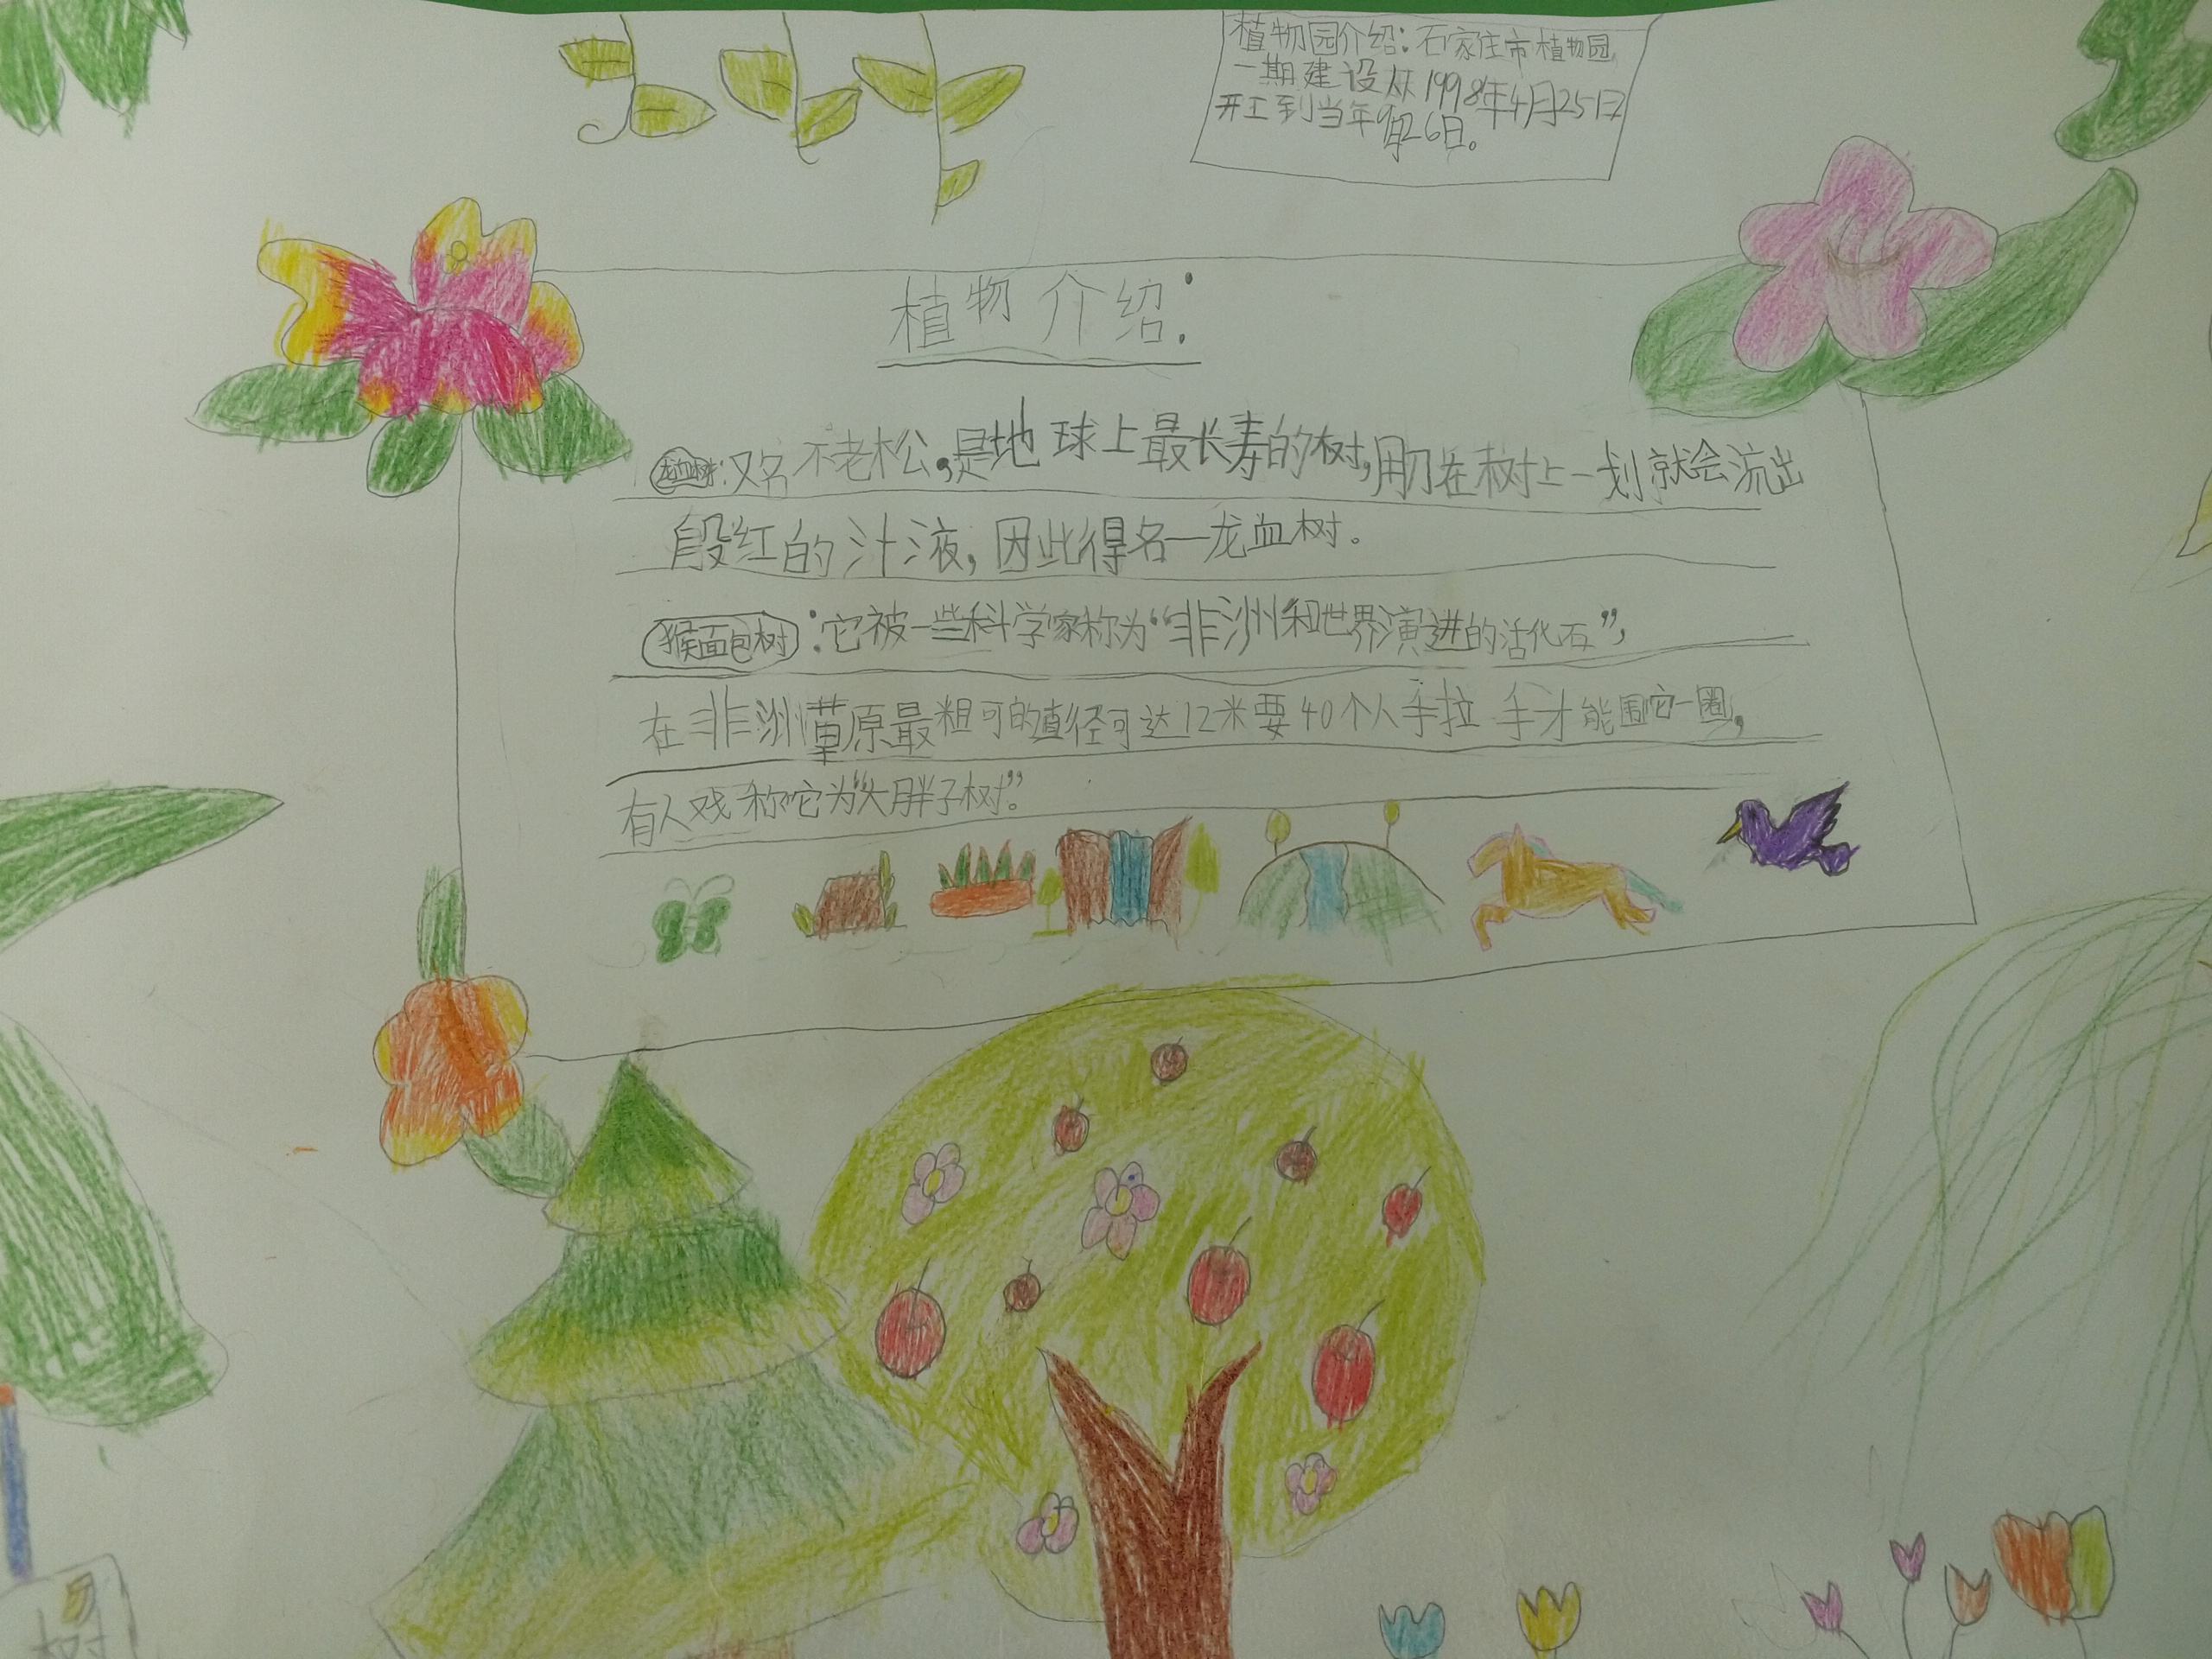 植物园介绍：石家庄市植物园
一期建设从1998年4月25日
开工到当年9月26日。
植物介绍：
龙血树：又名不老松，是地球上最长寿的树，用刀在树上一划就会流出
殷红的汁液，因此得名一龙血树。
猴面包树：它被一些科学家称为“非洲和世界演进的活化石”，
在非洲草原最粗可的直径可达12米要40个人手拉手才能围它一圈，
有人戏称它为“大胖子树”。
树